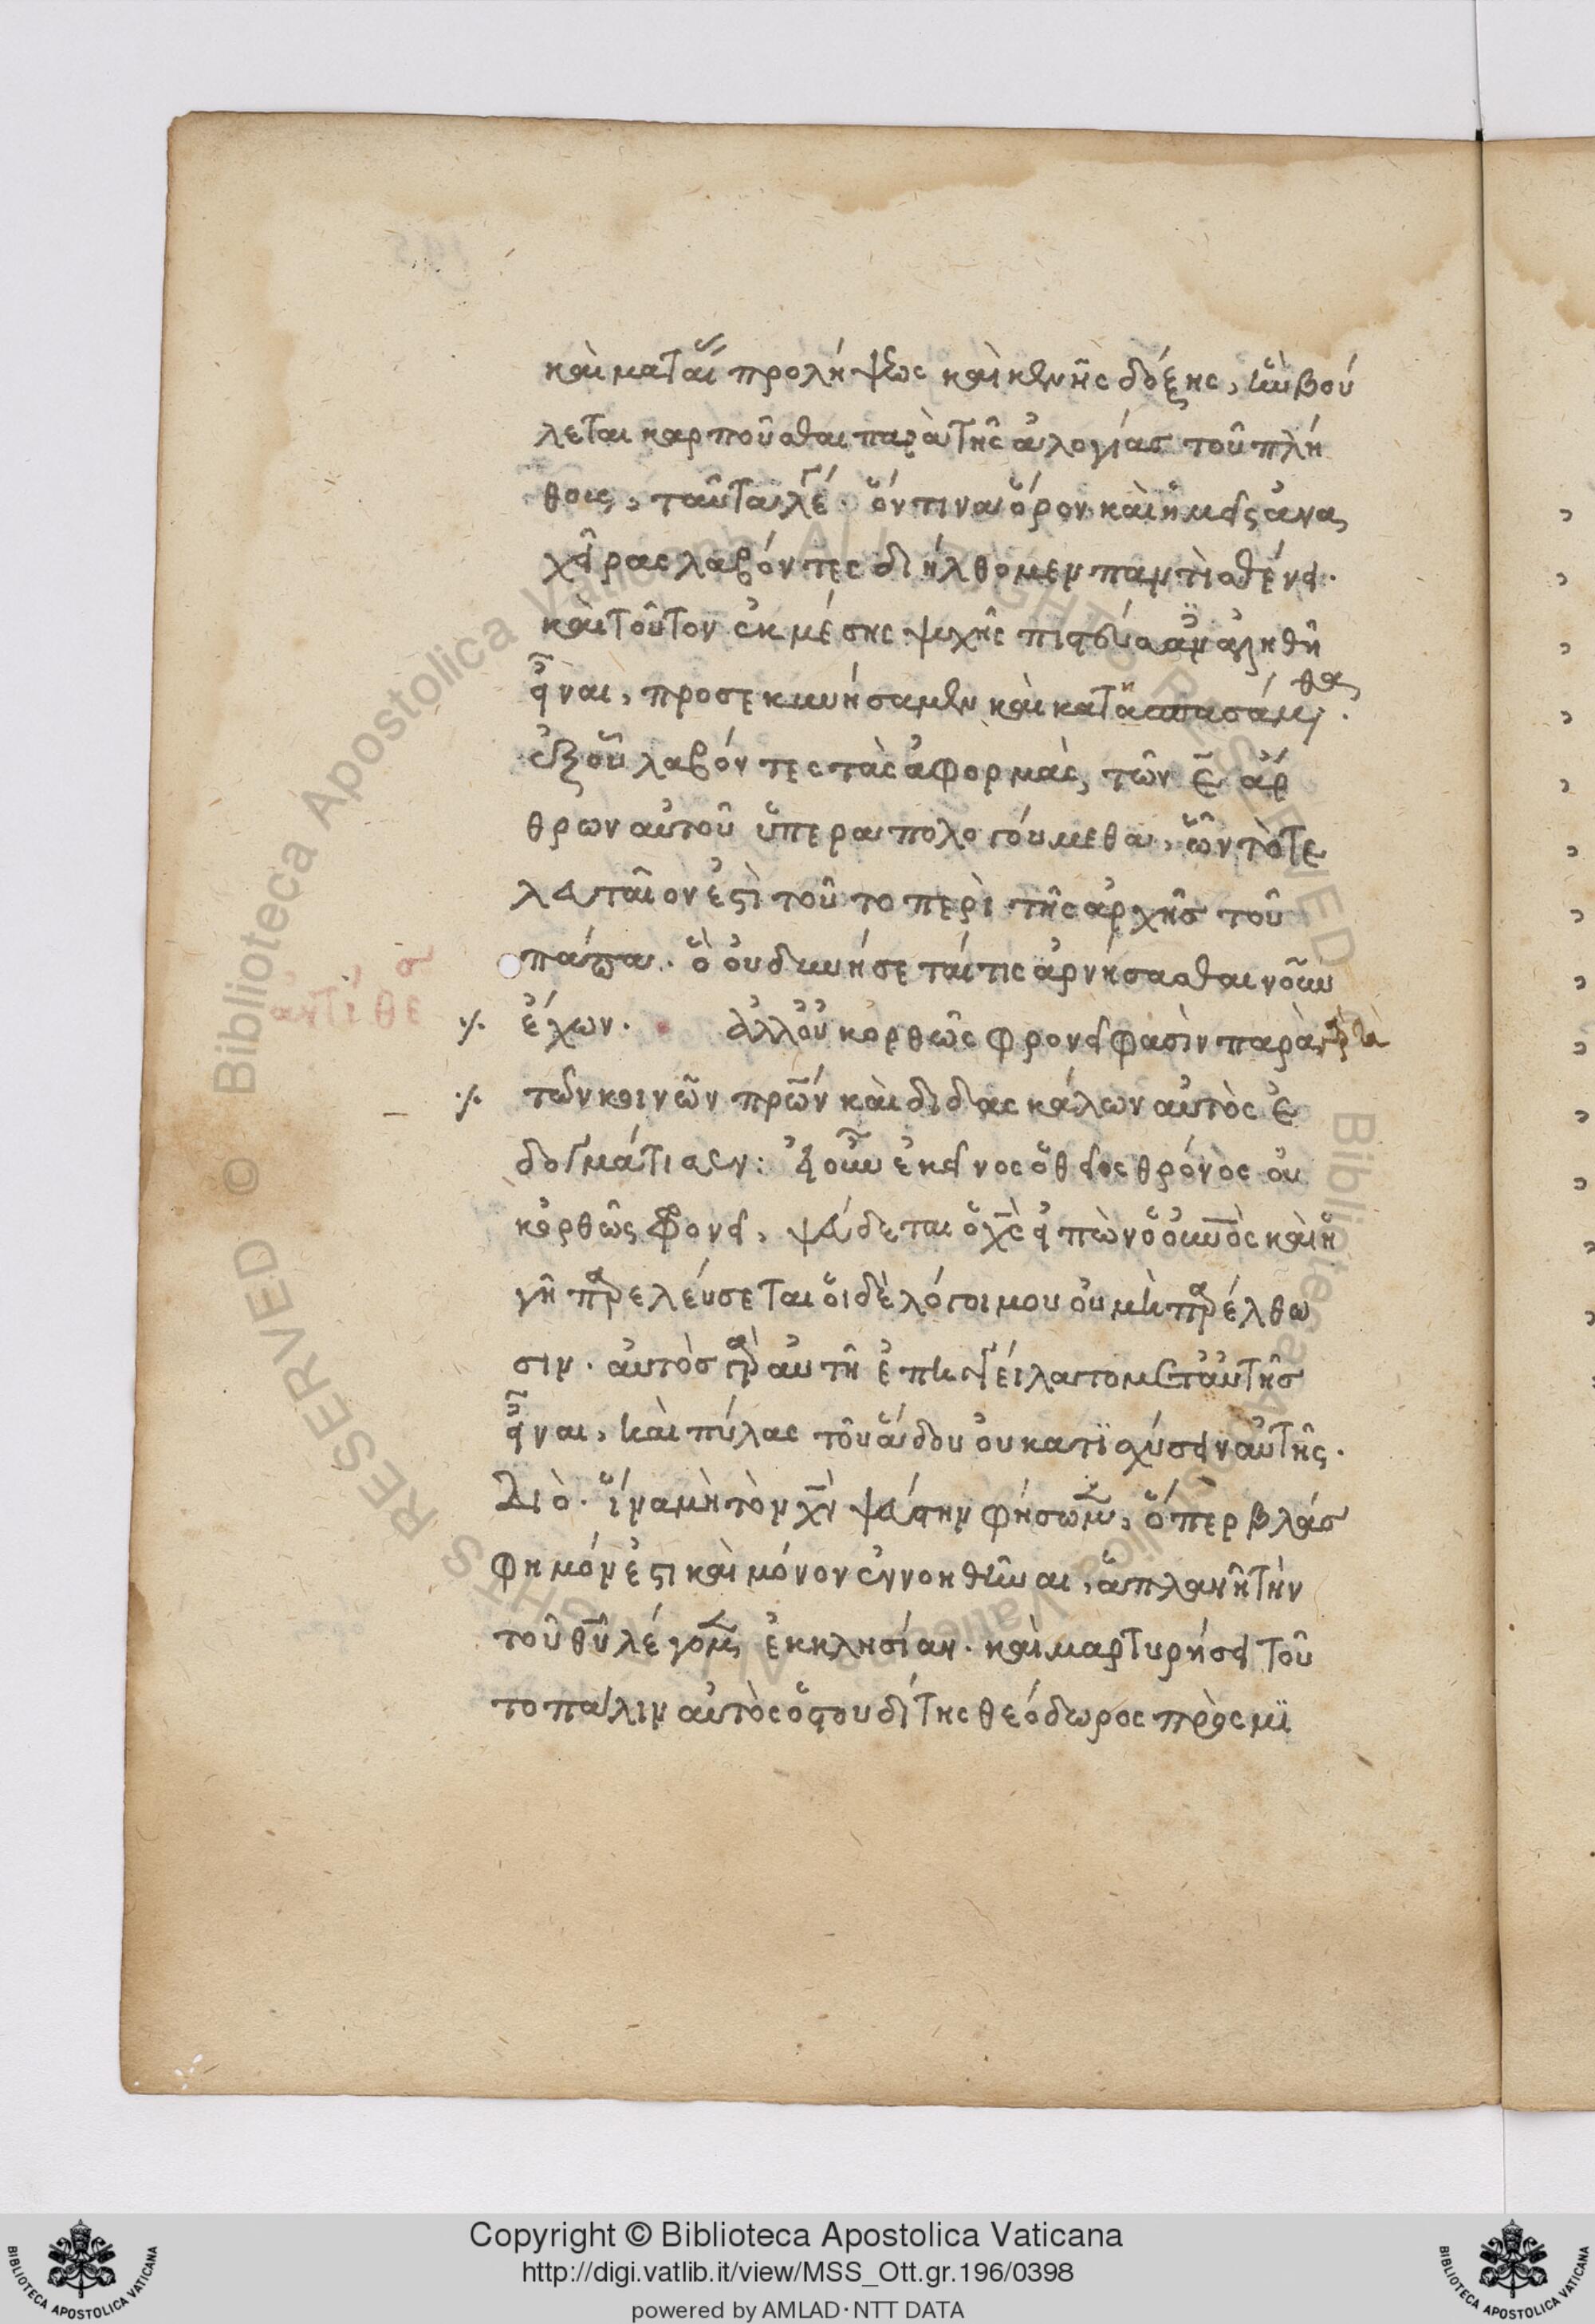 καὶ ματαί προλήψεως καὶ κενῆς δόξης, ἣν βού
λεται καρποῦσθαι παρὰ τῆς ἀλογίας τοῦ πλή
θους, ταῦτα λέγ. ὅντινα ὅρον καὶ ἡμεῖς ἀνα
χεῖρας λαβόντες διήλθομεν παντὶ σθένει.
καὶ τοῦτον ἐκ μέσης ψυχῆς πιστεύσαν ἀληθῆ
εἶναι, προσεκυνήσαμεν καὶ κατασπασάμεθα.
ἐξ οὗ λαβόντες τὰς ἀφορμάς, τῶν ε̄ ἄρ
θρων αὐτοῦ ὑπεραπολογούμεθα, ὧν τὸ τε
λευταῖον ἐστὶ τοῦτο περὶ τῆς ἀρχῆς τοῦ
πάπα. ὃ οὐ δυνήσεταί τις ἀρνήσασθαι νοῦν
ἀντίθεσ
⁒ ἔχων. ἀλλ' οὐκ ὀρθῶς φρονεῖ φασὶν παρὰ
⁒ τῶν κοινῶν πρῶν καὶ διδασκάλων αὐτὸς ἐ
δογμάτισεν: εἰ οὖν ἐκεῖνος ὁ θεῖος θρόνος οὐ
κ ὀρθῶς φρονεῖ, ψεύδεται ὁ χς εἰπὼν ὁ οὐνὸς καὶ ἡ
γῆ παρελεύσεται οἱ δὲ λόγοι μου οὐ μὴ παρέλθω
σιν. αὐτὸς γὰρ αὐτῆ ἐπηγγείλατο μετ' αὐτῆς
εἶναι, καὶ πύλας τοῦ ἅδου οὐ κατϊσχύσειν αὐτῆς.
Διὸ. ἵνα μὴ τὸν χν ψεύστην φήσωμεν, ὅπερ βλάσ
φημόν ἐστι καὶ μόνον ἐννοηθῆναι, ἀπλανῆ τὴν
τοῦ θυ λέγομεν ἐκκλησίαν. καὶ μαρτυρήσει τοῦ
το πάλιν αὐτὸς ὁ στουδίτης θεόδωρος πρὸς μϊ
Copyright © Biblioteca Apostolica Vaticana
http://digi.vatlib.it/view/MSS_Ott.gr.196/0398
powered by AMLAD·NTT DATA